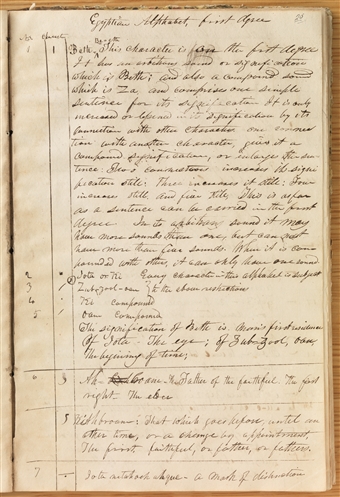 Egyptian Alphabet, first degree
No Charact
Ba-eeth
1 1 Beth, This character is in the first degree
It has an arbitrary sound or signification
which is Beth; and also a compound sound
which is Za, and comprises one simple
sentence for its signification It is only
increased or lessened in its signification by its
connection with other characters one connec-
tion with another character, gives it a
compound signification, or enlarges the sen-
tence. Two connections increases its signi-
fication still: Three increases it still: Four
increases still, and five still, This is as far
as a sentence can be carried in the first
degree. In its arbitrary sound it may
have more sounds than one, but can not
have more than five sounds. When it is com-
pounded with other, it can only have one sound
2 Iota or Ki Every character in this alphabet is subject
3 Zub zool-oan to the above restrictions
4 Ki compound
5 oan compound
The signification of Beth is. Man's first residence
Of Iota- The eye; of Zub zool, oan,
the beginning of time;
6 3 Ah- broam- The Father of the faithful. The first
right The elder
5 broam: That which goes before, until an
other time, or a change by appointment
The first, faithful, or father, or fathers.
7 - Iota a Mark of distinction